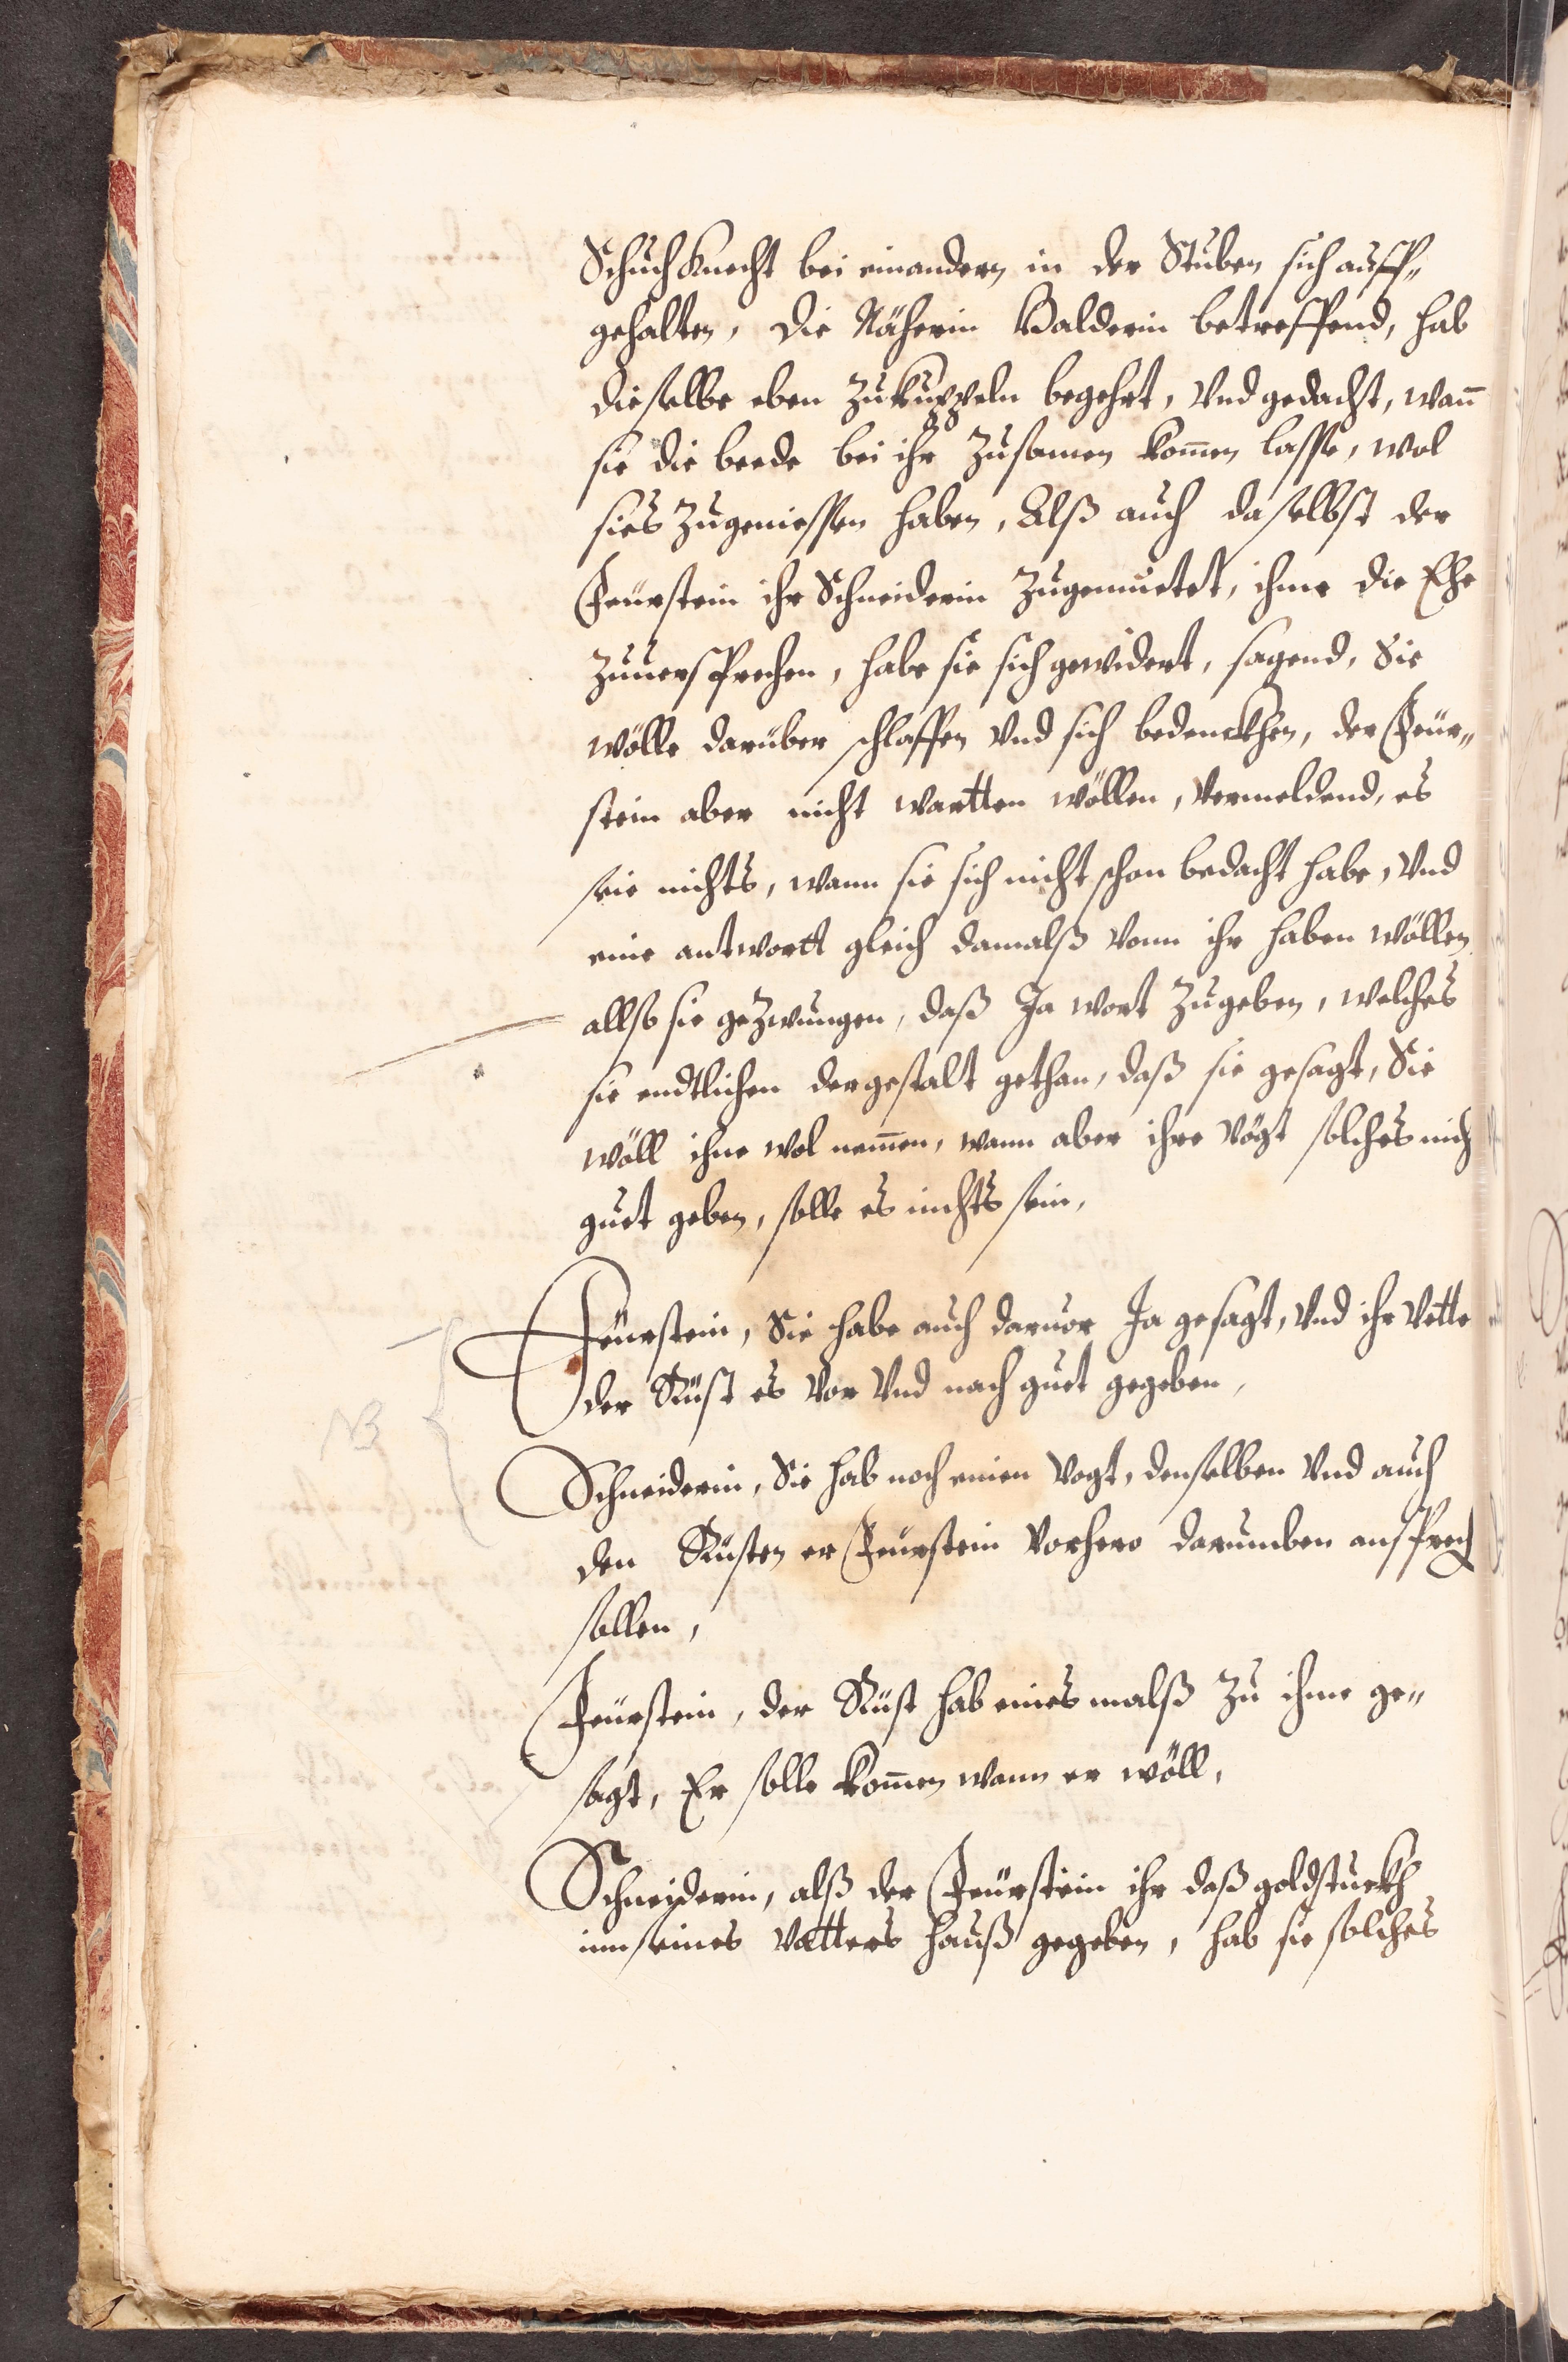 Schuch Knecht bei einandern in der Stuben sich auff„
gehalten, die Näherin Balderin betreffend, hab
dieselbe eben zukupplen begehrt, vnd gedacht, wan̄
sie die beede bei ihr zusamen kom̄en lasse, wol
sies zugeniessen haben, Alß auch daselbst der
Feürstein ihr Schneiderin zugemuetet, ihme die Ehe
zuuersprechen, habe sie sich gewidert, sagend, Sie
wölle darüber schlaffen vnd sich bedenckhen, der Feür„
stein aber nicht wartten wöllen, vermeldend, es
seie nichts, wann sie sich nicht schon bedacht habe, vnd
eine antwortt gleich damalß vonn ihr haben wöllen
allso sie gezwungen, daß Ja wort zugeben, welches
sie endtlichen dergestalt gethan, daß sie gesagt, Sie
wöll ihne wol nem̄en, wann aber ihre vögt solches nich
guet geben, solle es nichts sein,
Feürstein, Sie habe auch daruor Ja gesagt, vnd ihr vette
der Rüst es vor vnd nach guet gegeben,
NB
Schneiderin, Sie hab noch einen vogt, denselben vnd auch
den Rüsten er Feürstein vorhero darumben ansprech
sollen,
Feürstein, der Rüst hab eines malß zu ihme ge„
sagt, Er solle kom̄en wann er wöll,
Schneiderin, alß der Feürstein ihr daß goldstuckh
inn seines vatters hauß gegeben, hab sie solches